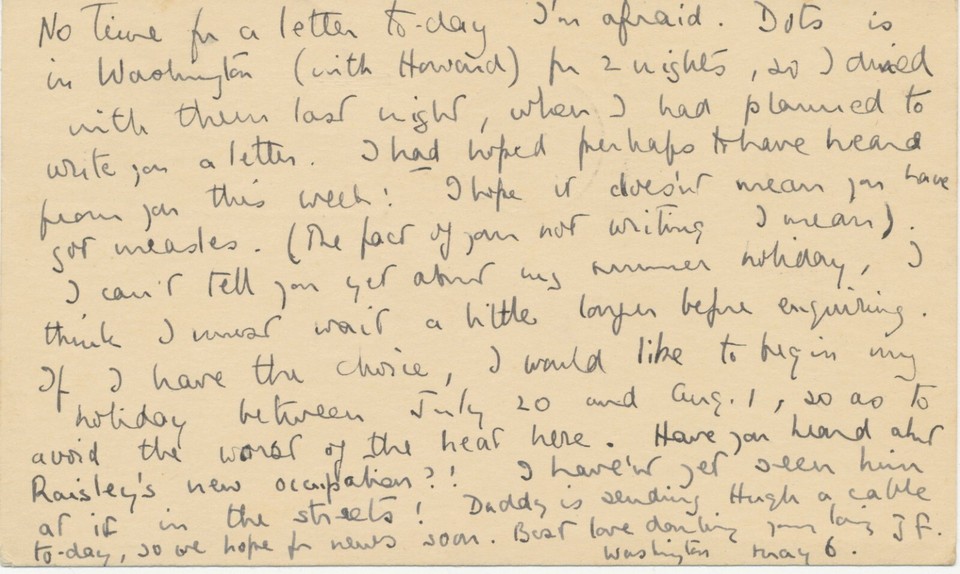 No time for a letter to-day I'm afraid. Dots is
in Washington (with Howard) for 2 nights, so I dined
with them last night, when I had planned to
write you a letter. I had hoped perhaps to have heard
from you this week: I hope it does'nt mean you have
got measles. (The fact of you not writing I mean).
I can't tell you yet about my summer holiday, I
think I must wait a little longer before enquiring.
If I have the choice, I would like to begin my
holiday between July 20 and Aug. 1, so as to
avoid the worst of the heat here. Have you heard abt
Raisley's new occupation?! I have'nt yet seen him
at it in the streets! Daddy is sending Hugh a cable
to-day, so we hope for news soon. Best love darling your loving J F.
Washington May 6.